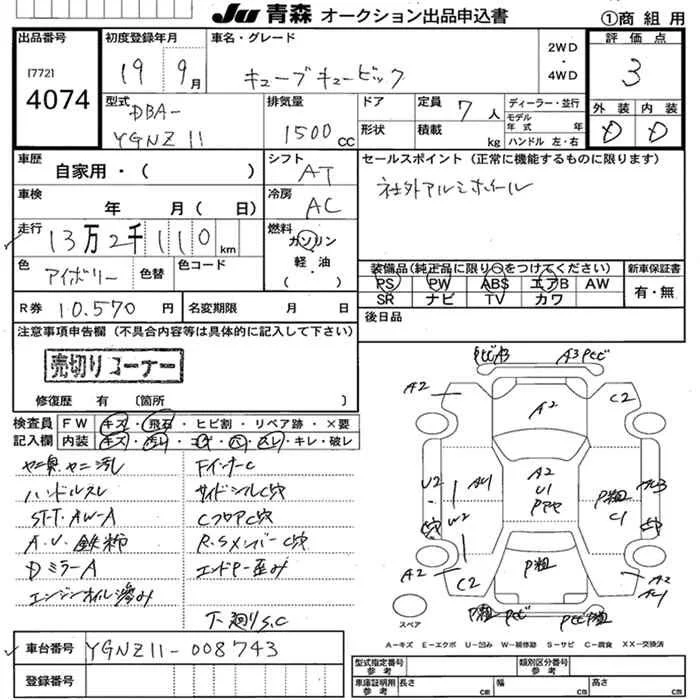 JU 青森 オークション出品申込書
①商 組 用
出品番号
[772]
4074
初度登録年月
19 9月
車名・グレード
キューブキュービック
2WD
・
4WD
評 価 点
3
型式
DBA-
YGNZ11
排気量
1500 CC
ドア
形状
定員 7 人
積載 kg
ディーラー・並行
モデル
年 式 年
ハンドル 左・右
外 装 内 装
D D
車歴
自家用・( )
シフト AT
セールスポイント(正常に機能するものに限ります)
社外アルミホイール
車検
年 月( 日)
冷房 AC
走行
13万2千110 km
燃料
ガソリン
軽・油
( )
色 アイボリー 色替 色コード
装備品(純正品に限り○をつけてください)
新車保証書
PS PW ABS エアB AW
SR ナビ TV カワ
有・無
R券 10.570 円
名変期限 月 日
後日品
注意事項申告欄(不具合内容等は具体的に記入して下さい)
売切りコーナー
修復歴 有 〔箇所 〕
検査員
記入欄
FW キズ・飛石・ヒビ割・リペア跡・×要
内装 キズ・汚レ・コゲ・穴・スレ・キレ・破レ
ヤニ臭、ヤニ汚レ
ハンドルスレ
ST-T.AW-A
DミラーA
エンジンオイル滲み
FインナーC
サイドシルC穴
CフロアC穴
R.SメンバーC穴
エンドP-歪み
下廻りS.C
A2
C2
A2
A2
U1
U2
W2
C1
P粗
P粗
C2
A2
A2
スペア
A-キズ E-エクボ U-凹み W-補修跡 S-サビ C-腐食 XX-交換済
車台番号 YGNZ11-008743
登録番号
型式指定番号
参 考
類別区分番号
参 考
車庫証明用
参 考
長さ cm 幅 cm 高さ cm